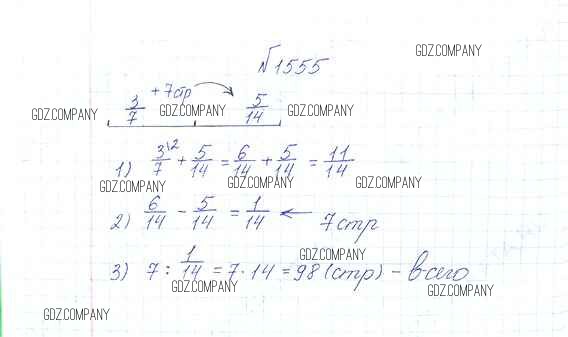 GDZ.COMPANY
№1555
+7стр
3/7 5/14
GDZ.COMPANY GDZ.COMPANY GDZ.COMPANY
1) 3\2/7 + 5/14 = 6/14 + 5/14 = 11/14
GDZ.COMPANY GDZ.COMPANY GDZ.COMPANY
2) 6/14 - 5/14 = 1/14 ← 7стр
GDZ.COMPANY
3) 7 : 1/14 = 7 · 14 = 98 (стр) - всего
GDZ.COMPANY GDZ.COMPANY
GDZ.COMPANY